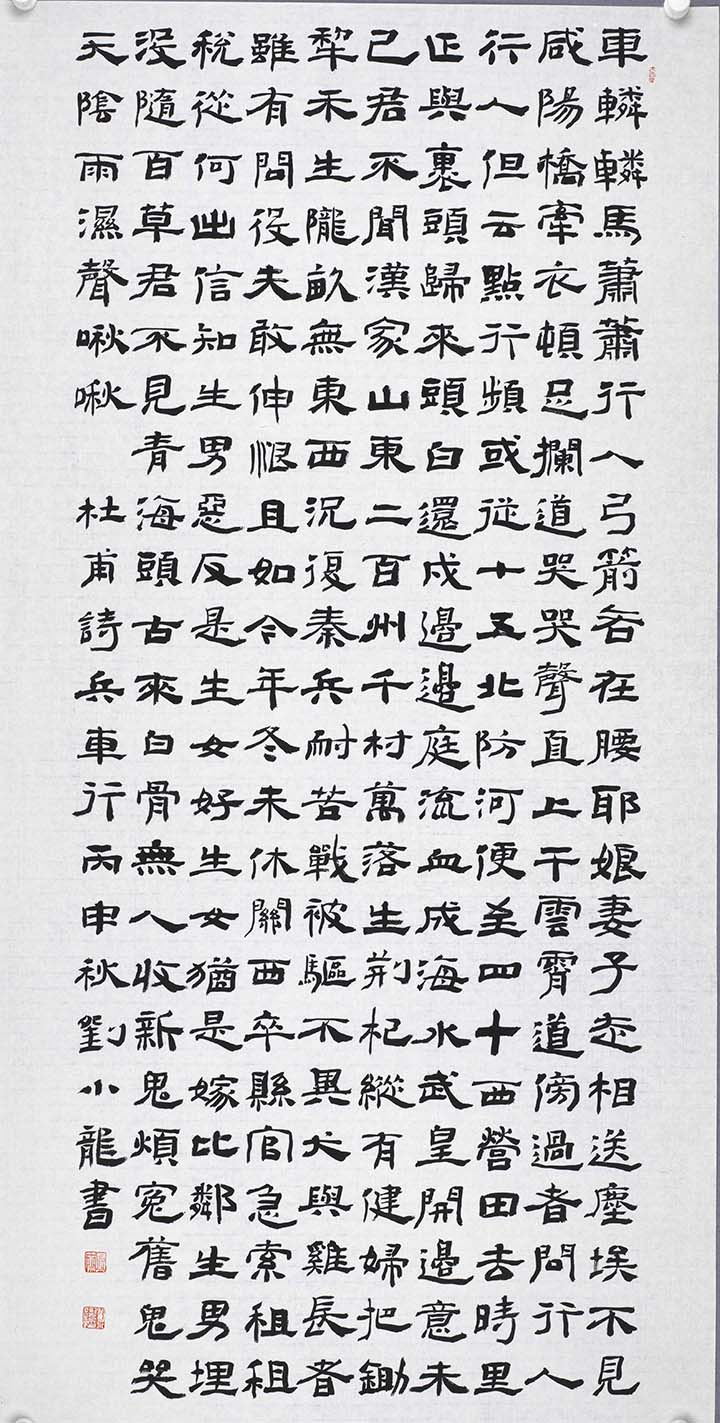 車轔轔馬蕭蕭行人弓箭各在腰耶娘妻子走相送塵埃不見
咸陽橋牽衣頓足攔道哭哭聲直上干雲霄道傍過者問行人
行人但云點行頻或從十五北防河便至四十西營田去時里
正與裹頭歸來頭白還戍邊邊庭流血成海水武皇開邊意未
已君不聞漢家山東二百州千村萬落生荊杞縱有健婦把鋤
犁禾生隴畝無東西況復秦兵耐苦戰被驅不異犬與雞長者
雖有問役夫敢伸恨且如今年冬未休關西卒縣官急索租租
稅從何出信知生男惡反是生女好生女猶是嫁比鄰生男埋
没隨百草君不見青海頭古來白骨無人收新鬼煩冤舊鬼哭
天陰雨濕聲啾啾 杜甫詩兵車行丙申秋劉小龍書